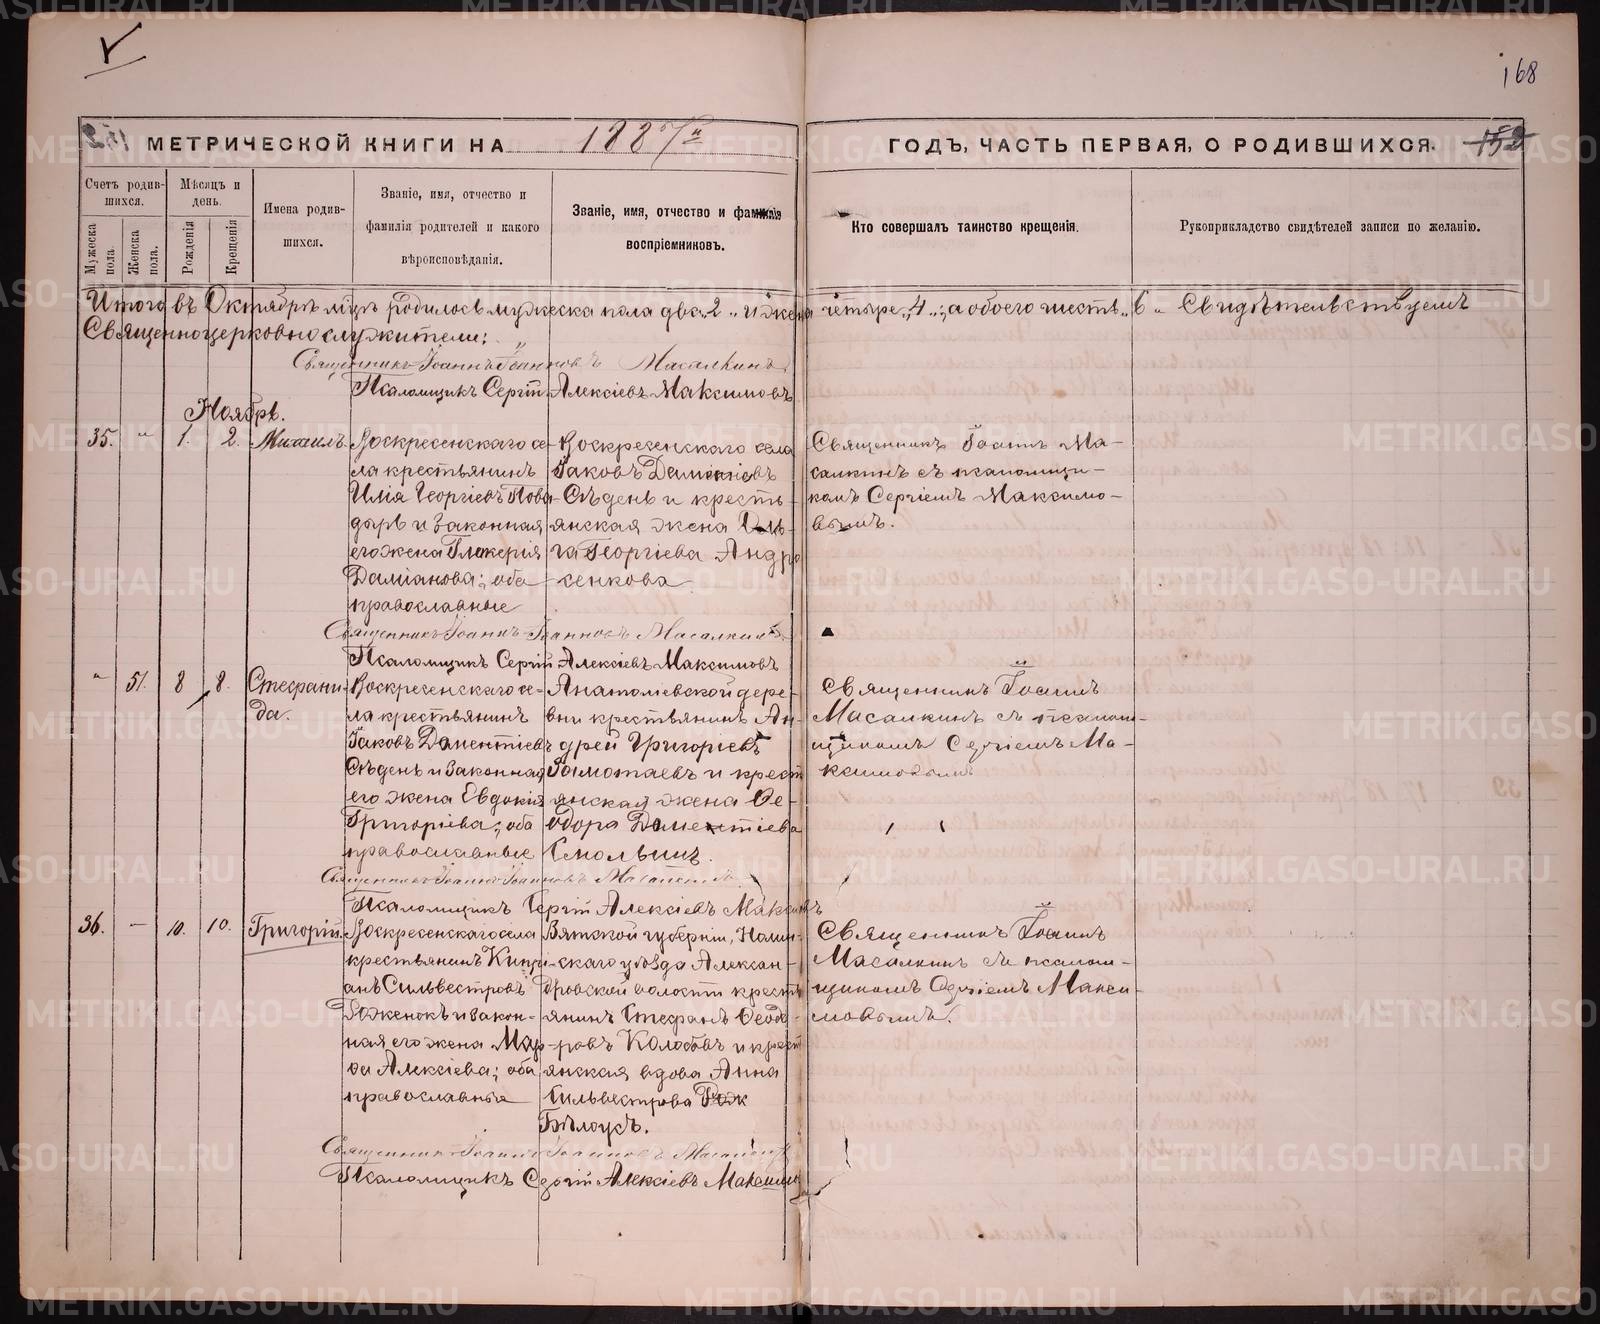 168
МЕТРИЧЕСКОЙ КНИГИ НА 1887й ГОДЪ, ЧАСТЬ ПЕРВАЯ, О РОДИВШИХСЯ. 152
Счетъ родившихся.
Мужеска пола.
Женска пола.
Мѣсяцъ и день.
Рожденія
Крещенія
Имена родившихся.
Званіе, имя, отчество и фамилія родителей и какого вѣроисповѣданія.
Званіе, имя, отчество и фамилія воспріемниковъ.
Кто совершалъ таинство крещенія.
Рукоприкладство свидѣтелей записи по желанію.
Итого въ Октябрѣ мцѣ родилось мужеска пола два „2„ и женска четыре „4„; а обоего шесть „6„ Свидѣтельствуемъ
Священноцерковнослужители:
Священникъ Іоаннъ Іоанновъ Масалкинъ
Псаломщикъ Сергій Алексіевъ Максимовъ
Ноябрь.
35. „ 1. 2. Михаилъ.
Воскресенскаго се-
ла крестьянинъ
Илія Георгіевъ Пова-
дырь и законная
его жена Гликерія
Даміанова; оба
православные
Воскресенскаго села
Іаковъ Даментіевъ
Слѣдень и кресть-
янская жена Оль-
га Георгіева Андро
сенкова
Священникъ Іоаннъ Ма-
салкинъ съ псаломщи-
комъ Сергіемъ Максимо-
вымъ.
Священникъ Іоаннъ Іоанновъ Масалкинъ
Псаломщикъ Сергій Алексіевъ Максимовъ
„ 51. 8 8. Стефани-
да.
Воскресенскаго се-
ла крестьянинъ
Іаковъ Даментіевъ
Слѣдень и законная
его жена Евдокія
Григоріева; оба
православные
Анатоліевской дере-
вни крестьянинъ Ан-
дрей Григоріевъ
Замотаевъ и крест
янская жена Ѳе-
одора Даментіева
Смольнин.
Священникъ Іоаннъ
Масалкинъ съ псалом-
щикомъ Сергіемъ Ма-
ксимовымъ
Священникъ Іоаннъ Іоанновъ Масалкинъ
Псаломщикъ Сергій Алексіевъ Максимовъ
36. — 10. 10. Григорій.
Воскресенскаго села
крестьянинъ Кипрі-
анъ Сильвестровъ
Боженокъ и закон-
ная его жена Мар-
ѳа Алексіева; оба
православныя
Вятской губерніи, Нолин-
скаго уѣзда Алексан-
дровской волости кресть
янинъ Стефанъ Ѳеодо
ровъ Колобовъ и крест
янская вдова Анна
Сильвестрова
Бѣлоусъ.
Священникъ Іоаннъ
Масалкинъ съ псалом-
щикомъ Сергіемъ Макси-
мовымъ.
Священникъ Іоаннъ Іоанновъ Масалкинъ
Псаломщикъ Сергій Алексіевъ Максимовъ
METRIKI.GASO-URAL.RU